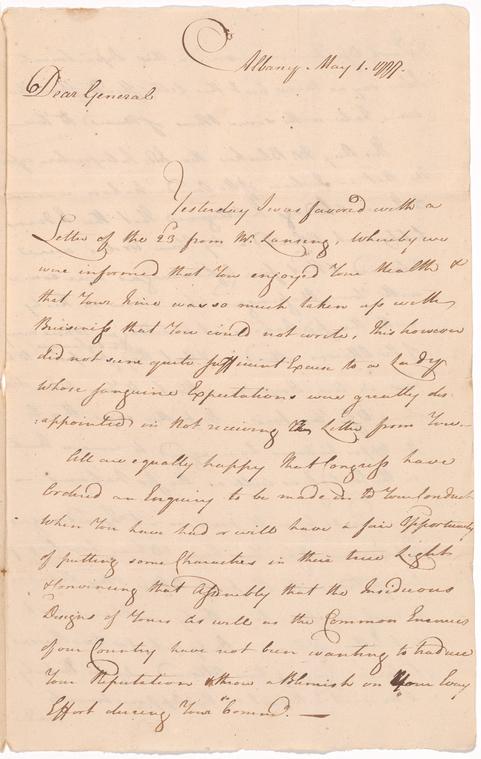 Albany May 1. 1777.
Dear General
Yesterday I was favored with a
Letter of the 23 from Mr. Lansing, whereby we
were informed that You enjoyed Your Health &
that Your time was so much taken up with
Buisiness that You could not write, this however
did not seem quite sufficient Excuse to a Lady
whose sanguine Expectations were greatly dis
:appointed in not receiving a Letter from You.—
All are equally happy that Congress have
Ordered an Enquiry to be made in to Your Conduct
when You have had or will have a fair Opportunity
of putting some Characters in their true Light
& convincing that Assembly that the Insiduous
Designs of Yours as well as the Common Enemies
of our Country have not been wanting to traduce
Your Reputation & throw a Blemish on Your Every
Effort during Your Commd. —